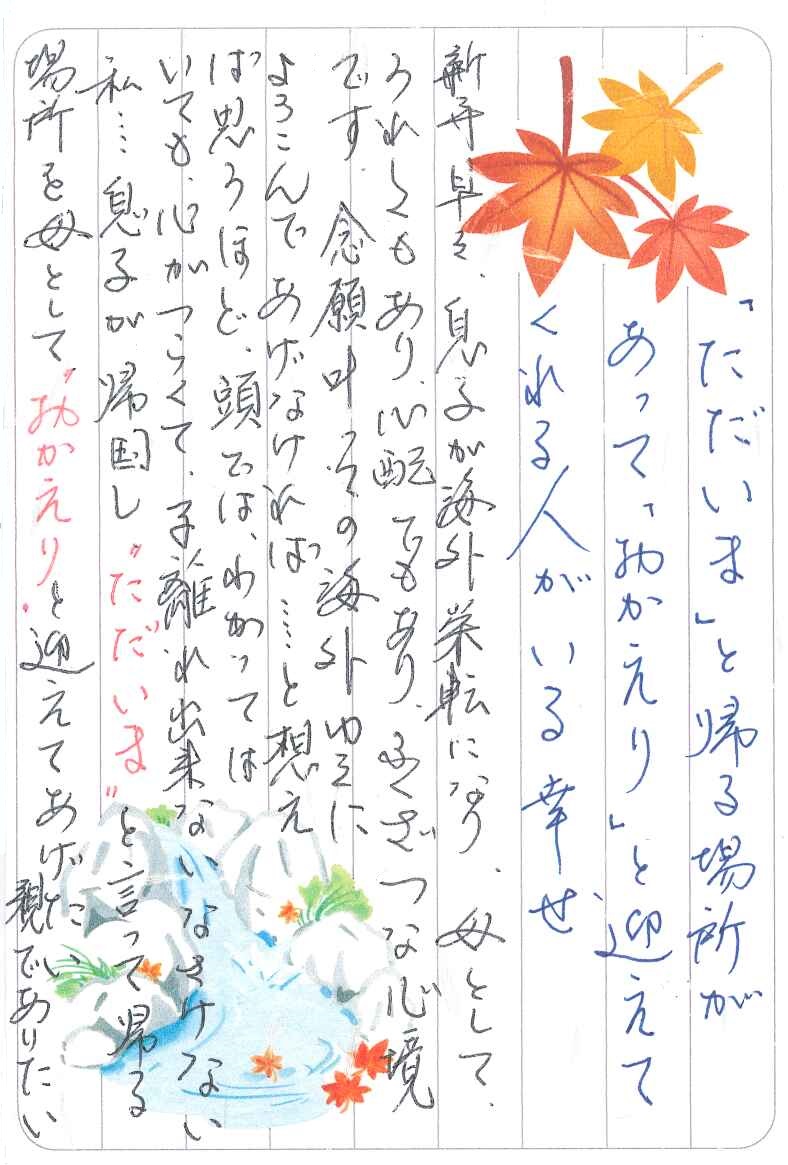 「ただいま」と帰る場所が
あって「おかえり」と迎えて
くれる人がいる幸せ
新年早々、息子が海外栄転になり、母として、
うれしくもあり、心配でもあり、ふくざつな心境
です。念願叶っての海外ゆえに
よろこんであげなければ……と想え
ば思うほど、頭では、わかっては
いても、心がつらくて、子離れ出来ないなさけない
私…。息子が帰国し"ただいま"と言って帰る
場所を母として"おかえり"と迎えてあげたい
親でありたい